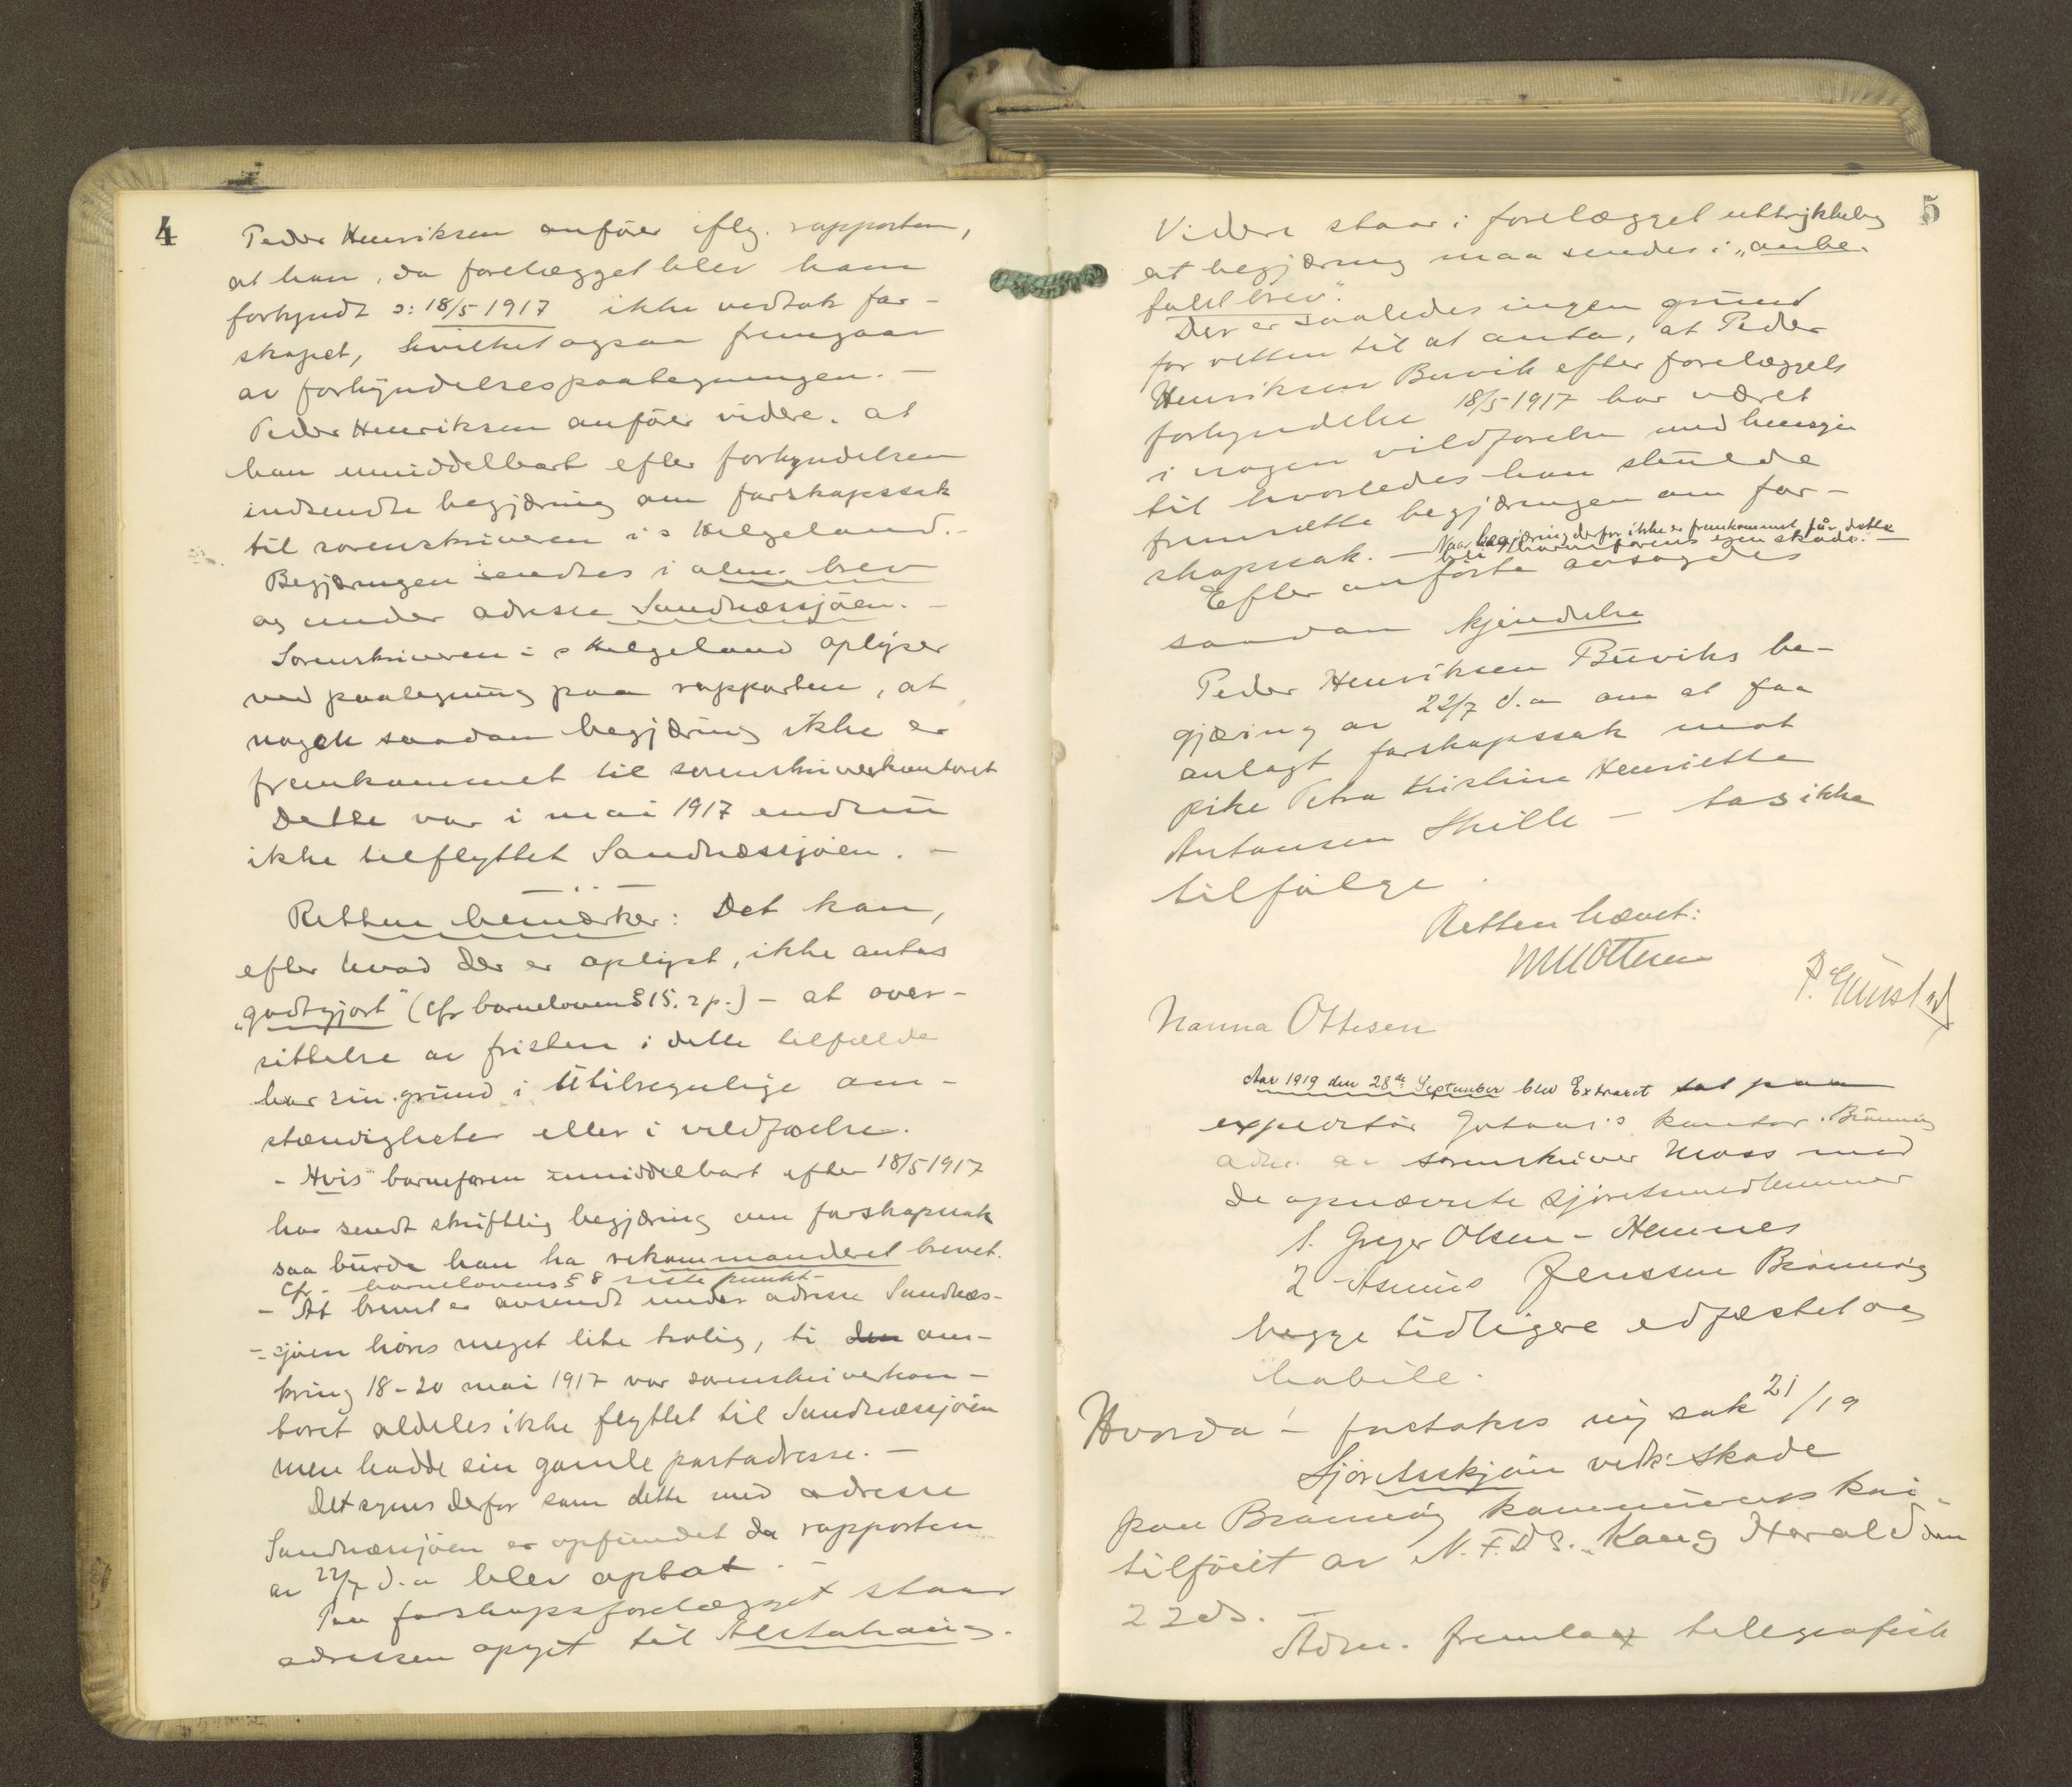 4
Peder Henriksen anfører iflg. rapporten,
at han, da forelægget blev ham
forkyndt ɔ: 18/5 1917 ikke vedtok far-
skapet, hvilket ogsaa fremgaar
av forkyndelsespaategningen. —
Peder Henriksen anfører videre, at
han umiddelbart efter forkyndelsen
indsendte begjæring om farskapssak
til sorenskriveren i s Helgeland. -
Begjæringen sendtes i alm. brev
og under adresse Sandnæssjøen. -
Sorenskriveren i s Helgeland oplyser
ved paategning paa rapporten, at
nogen saadan begjæring ikke er
fremkommet til sorenskriverkontoret
Dette var i mai 1917 endnu
ikke tilflyttet Sandnæssjøen. -
Retten bemærker: Det kan,
efter hvad der er oplyst, ikke antas
„godtgjort" (cfr barneloven § 15. 2 p.) - at over-
sittelse av fristen i dette tilfælde
har sin grund i utilregnelige om-
stændigheter eller i vildfarelse.
- Hvis barnefaren umiddelbart efter 18/5 1917
har sendt skriftlig begjæring om farskapssak
saa burde han ha rekommanderet brevet.
cfr. barnelovens § 8 siste punkt -
- At brevet er avsendt under adresse Sandnæs-
- sjøen høres meget lite trolig, ti den om-
kring 18-20 mai 1917 var sorenskriverkon-
toret aldeles ikke flyttet til Sandnæssjøen
men hadde sin gamle postadresse. -
Det synes derfor som dette med adresse
Sandnæssjøen er opfundet da rapporten
av 22/7 d.a blev optat. -
Paa farskapsforelægget staar
adressen opgit til Alstahaug.
5
Videre staar i forelægget uttrykkelig
at begjæring maa sendes i „anbe-
falet brev".
Der er saaledes ingen grund
for retten til at anta, at Peder
Henriksen Buvik efter forelæggets
forkyndelse 18/5 1917 har været
i nogen vildfarelse med hensyn
til hvorledes han skulde
fremsætte begjæringen om far-
skapssak. - Naar begjæring derfor ikke er fremkommet faar dette
bli barnefarens egen skade. -
Efter anførte avsagdes
saadan kjendelse
Peder Henriksen Buviks be-
gjæring av 22/7 d.a om at faa
anlagt farskapssak mot
pike Petra Kristine Henriette
Antonsen Skille - tas ikke
tilfølge.
Retten hævet:
Nanna Ottesen
Aar 1919 den 28de September blev Extraret sat paa
expeditør kontor. Brønnøy
adm. av sorenskriver Moss med
de opnævnte sjøretsmedlemmer
1. Greger Olsen - Hemnes
2 Asmus Jenssen Brønnøy
begge tidligere edfæstet og
habile.
Hvorda - foretakes ny sak 21/19
Sjøretsskjøn vedk. skade
paa Brønnøy kommunes kai
tilføiet av N.F.D.S. „Kong Harald den
22ds.
Adm. fremla telegrafisk